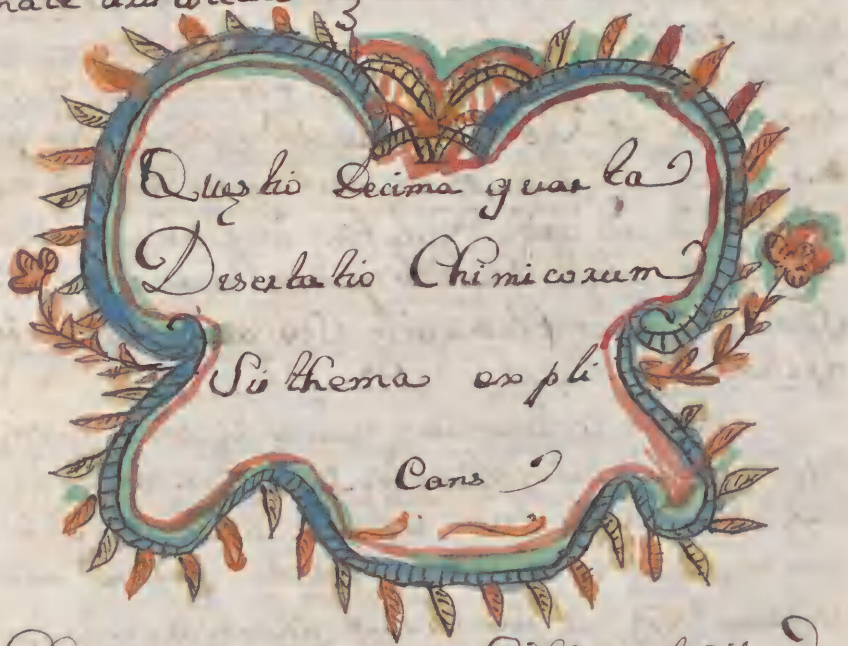 Quęstio Decima quarta
Desertatio Chimicorum
Sisthema expli
Cans